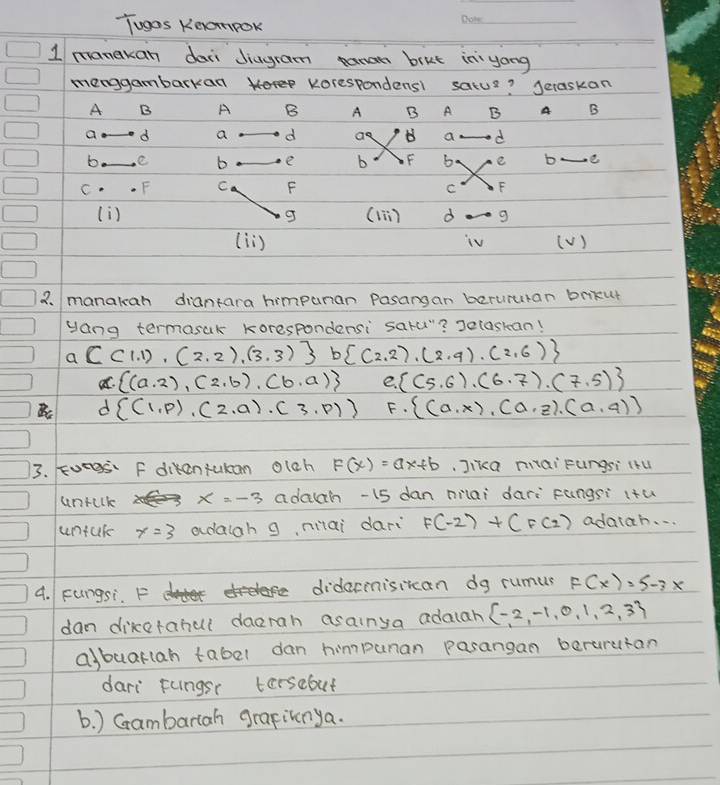 Tugas Kelompok
Date:
1 manakah dari diagram panah brkt ini yang
menggambarkan korespondensi satu²? Jelaskan
A B A B A B A B A B
a d a d a d a d
b e b e b F b e b e
c F c F c F
(i) g (iii) d g
(ii) iv (v)
2. manakah diantara himpunan Pasangan berurutan brikut
yang termasuk korespondensi satu"? Jelaskan!
a { (1.1), (2.2), (3.3) } b{(2.2), (2.4). (2,6)}
c {(a.2), (2.b). (b.a)} e.{(5.6). (6.7). (7.5)}
d{(1.p). (2.a). (3.p)} F. {(a.x), (a.z). (a.a)}
3. Fungsi F ditentukan oleh F(x) = ax+b. Jika nilai Fungsi itu
untuk x = -3 adalah -15 dan nilai dari Fungsi itu
untuk x = 3 adalah 9, nilai dari F(-2) + (F(2) adalah...
4. Fungsi. F didefinisikan dg rumus F(x) = 5-3x
dan diketahui daerah asalnya adalah {-2, -1, 0, 1, 2, 3}
a) buatlah tabel dan himpunan pasangan berurutan
dari Fungsi tersebut
b.) Gambarlah grafiknya.